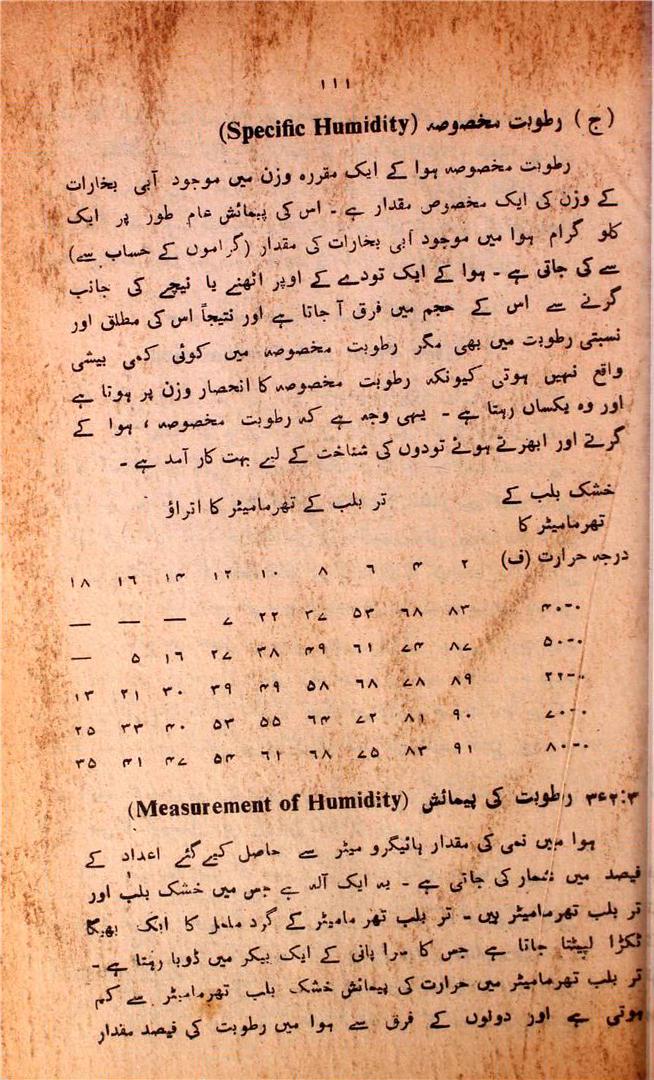 ۱۱۱
(ج) رطوبت مخصوصہ (Specific Humidity)
رطوبت مخصوصہ ہوا کے ایک مقررہ وزن میں موجود آبی بخارات
کے وزن کی ایک مخصوص مقدار ہے ۔ اس کی پیمائش عام طور پر ایک
کلو گرام ہوا میں موجود آبی بخارات کی مقدار (گراموں کے حساب سے)
سے کی جاتی ہے ۔ ہوا کے ایک تودے کے اوپر اٹھنے یا نیچے کی جانب
گرنے سے اس کے حجم میں فرق آ جاتا ہے اور نتیجاً اس کی مطلق اور
نسبتی رطوبت میں بھی مگر رطوبت مخصوصہ میں کوئی کمی بیشی
واقع نہیں ہوتی کیونکہ رطوبت مخصوصہ کا انحصار وزن پر ہوتا ہے
اور وہ یکساں رہتا ہے ۔ یہی وجہ ہے کہ رطوبت مخصوصہ ، ہوا کے
گرتے اور ابھرتے ہوئے تودوں کی شناخت کے لیے بہت کار آمد ہے ۔
خشک بلب کے تر بلب کے تھرمامیٹر کا اتراؤ
تھرمامیٹر کا
درجہ حرارت (ف) ۲ ۴ ۶ ۸ ۱۰ ۱۲ ۱۴ ۱۶ ۱۸
۴۰-۰ ۸۳ ۶۸ ۵۳ ۳۷ ۲۲ ۷ — — —
۵۰-۰ ۸۷ ۷۴ ۶۱ ۴۹ ۳۸ ۲۷ ۱۶ ۵ —
۲۲-۰ ۸۹ ۷۸ ۶۸ ۵۸ ۴۹ ۳۹ ۳۰ ۲۱ ۱۳
۷۰-۰ ۹۰ ۸۱ ۷۲ ۶۴ ۵۵ ۵۳ ۴۰ ۳۳ ۲۵
۸۰-۰ ۹۱ ۸۳ ۷۵ ۶۸ ۶۱ ۵۴ ۴۷ ۴۱ ۳۵
۳ء۲:۳ رطوبت کی پیمائش (Measurement of Humidity)
ہوا میں نمی کی مقدار ہائیگرو میٹر سے حاصل کیے گئے اعداد کے
فیصد میں شمار کی جاتی ہے ۔ یہ ایک آلہ ہے جس میں خشک بلب اور
تر بلب تھرمامیٹر ہیں ۔ تر بلب تھر مامیٹر کے گرد ململ کا ایک بھیگا
ٹکڑا لپیٹا جاتا ہے جس کا سرا پانی کے ایک بیکر میں ڈوبا رہتا ہے ۔
تر بلب تھرمامیٹر میں حرارت کی پیمائش خشک بلب تھرمامیٹر سے کم
ہوتی ہے اور دونوں کے فرق سے ہوا میں رطوبت کی فیصد مقدار